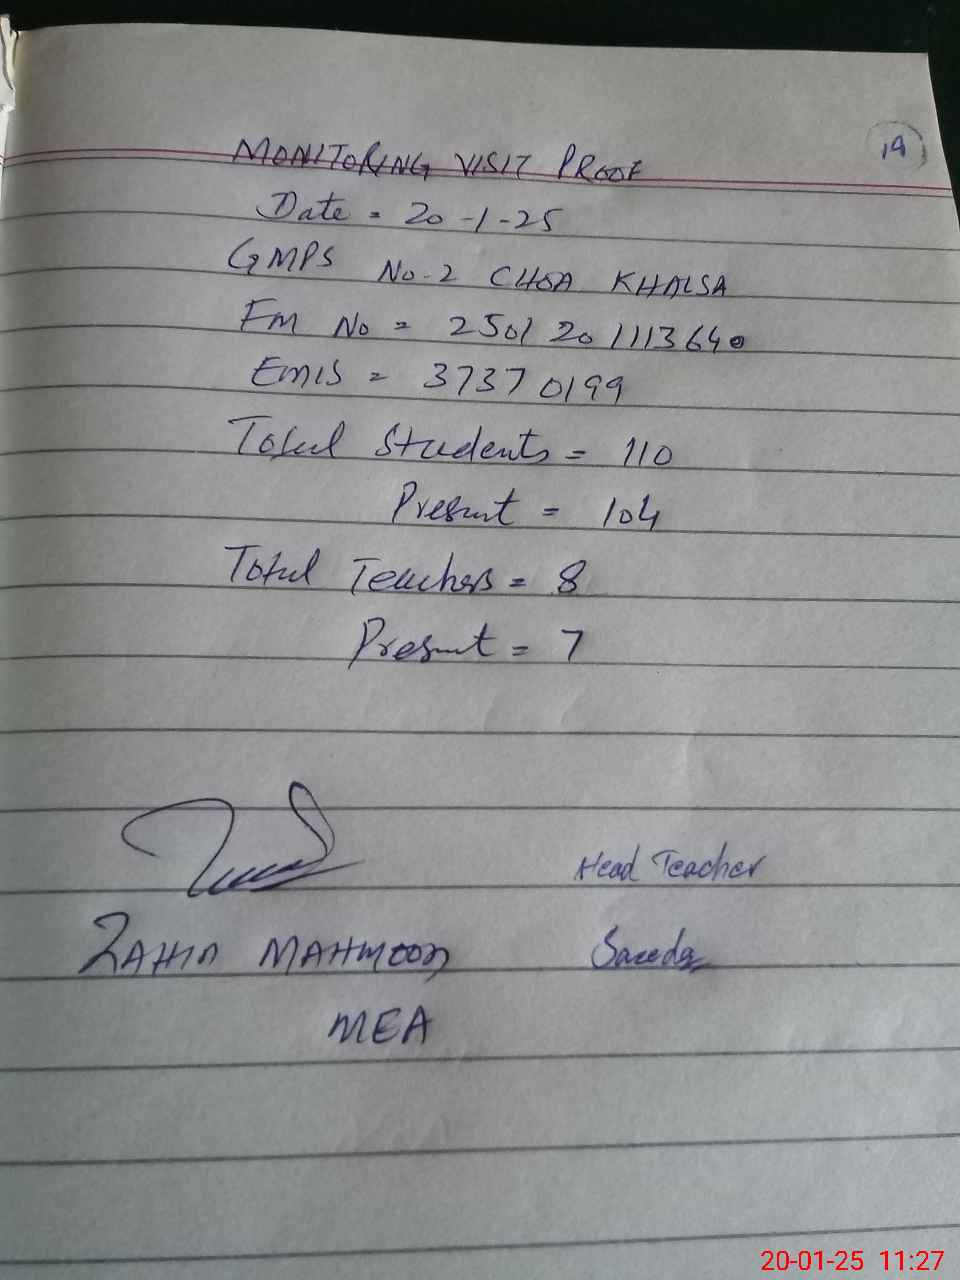 19
MONITORING VISIT PROOF
Date = 20-1-25
GMPS No-2 CHOA KHALSA
Fm No = 2501201113640
EMIS = 37370199
Total Students = 110
Present = 104
Total Teachers = 8
Present = 7
Head Teacher
ZAHID MAHMOOD
Saeeda
MEA
20-01-25 11:27